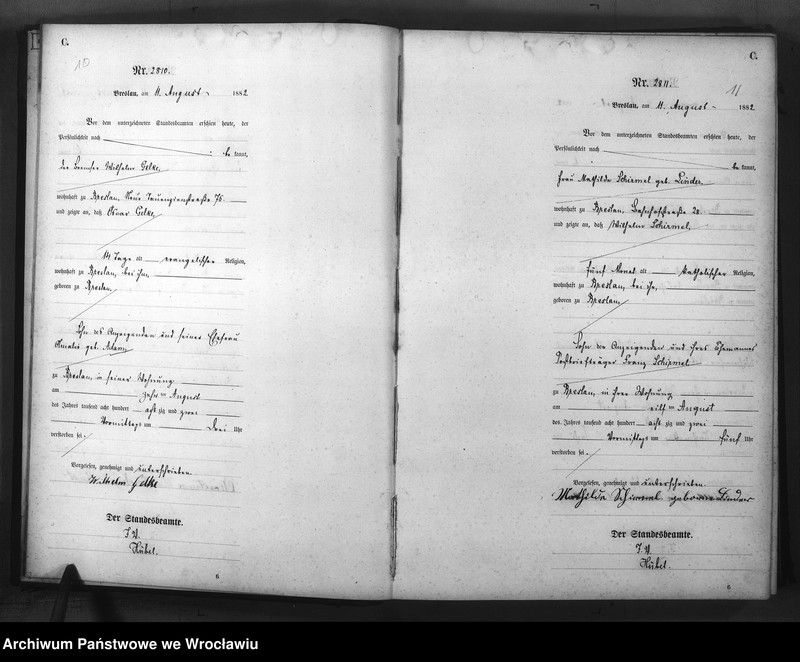 C.
10
Nr. 2810.
Breslau, am 11. August 1882
Vor dem unterzeichneten Standesbeamten erschien heute, der
Persönlichkeit nach
be kannt,
der Bremser Wilhelm Gelke
wohnhaft zu Breslau, Neue Tauentzienstraße 75.
und zeigte an, daß Oscar Gelke
14 Tage alt evangelischer Religion,
wohnhaft zu Breslau, bei ihm,
geboren zu Breslau
Sohn des Anzeigenden und seiner Ehefrau
Amalie geb. Adam
zu Breslau, in seiner Wohnung
am zehn ten August
des Jahres tausend acht hundert acht zig und zwei
Vormittags um drei Uhr
verstorben sei.
Vorgelesen, genehmigt und unterschrieben
Wilhelm Gelke
Der Standesbeamte.
I. V.
Hübel.
6
C.
11
Nr. 2811.
Breslau, am 11. August 1882
Vor dem unterzeichneten Standesbeamten erschien heute, der
Persönlichkeit nach
be kannt,
Frau Mathilde Schirmel geb. Linder
wohnhaft zu Breslau, Bahnhofstraße 28.
und zeigte an, daß Wilhelm Schirmel,
fünf Monat alt katholischer Religion,
wohnhaft zu Breslau, bei ihr,
geboren zu Breslau,
Sohn der Anzeigenden und ihres Ehemannes
Postbriefträger Franz Schirmel
zu Breslau, in ihrer Wohnung
am eilf ten August
des Jahres tausend acht hundert acht zig und zwei
Vormittags um fünf Uhr
verstorben sei.
Vorgelesen, genehmigt und unterschrieben
Mathilde Schirmel geborene Linder
Der Standesbeamte.
I. V.
Hübel.
6
Archiwum Państwowe we Wrocławiu